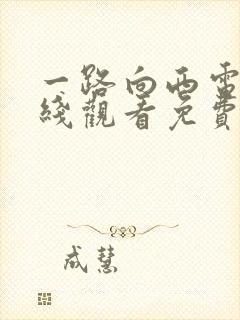 一路向西電
綫觀看免費
成慧